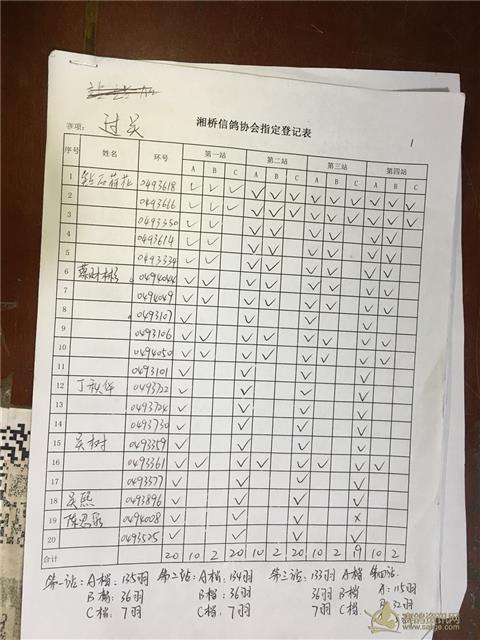 湘桥信鸽协会指定登记表
1
赛项: 过关
序号 姓名 环号 第一站 第二站 第三站 第四站
A B C A B C A B C A B C
1 钻石荷花 0493618 ✓ ✓ ✓ ✓ ✓ ✓ ✓ ✓ ✓ ✓ ✓ ✓
2 0493666 ✓ ✓ ✓ ✓ ✓ ✓ ✓ ✓ ✓ ✓ ✓ ✓
3 0493350 ✓ ✓ ✓ ✓ ✓ ✓ ✓ ✓
4 0493614 ✓ ✓ ✓ ✓ ✓ ✓ ✓ ✓
5 0493334 ✓ ✓ ✓ ✓ ✓ ✓ ✓ ✓
6 0494044 ✓ ✓ ✓ ✓ ✓ ✓ ✓ ✓
7 0494049 ✓ ✓ ✓ ✓ ✓ ✓ ✓ ✓
8 0493107 ✓ ✓ ✓ ✓
9 0493106 ✓ ✓ ✓ ✓ ✓ ✓ ✓ ✓
10 0494050 ✓ ✓ ✓ ✓ ✓ ✓ ✓ ✓
11 0493101 ✓ ✓ ✓ ✓
12 丁秋华 0493722 ✓ ✓ ✓
13 0493724 ✓ ✓ ✓
14 0493730 ✓ ✓ ✓
15 吴树 0493359 ✓ ✓ ✓
16 0493361 ✓ ✓ ✓ ✓ ✓ ✓ ✓ ✓
17 0493377 ✓ ✓ ✓
18 吴熙 0493896 ✓ ✓ ✓
19 0494008 ✓ ✓ ✗
20 0493525 ✓ ✓ ✓
合计 20 10 2 20 10 2 20 10 2 19 10 2
第一站: A档: 135羽 第二站: A档: 134羽 第三站: 133羽 A档 第四站.
B档: 36羽 B档: 36羽 36羽 B档 A: 115羽
C档: 7羽 C档: 7羽 7羽 C档. B: 32羽
赛鸽资讯网
www.saige.com